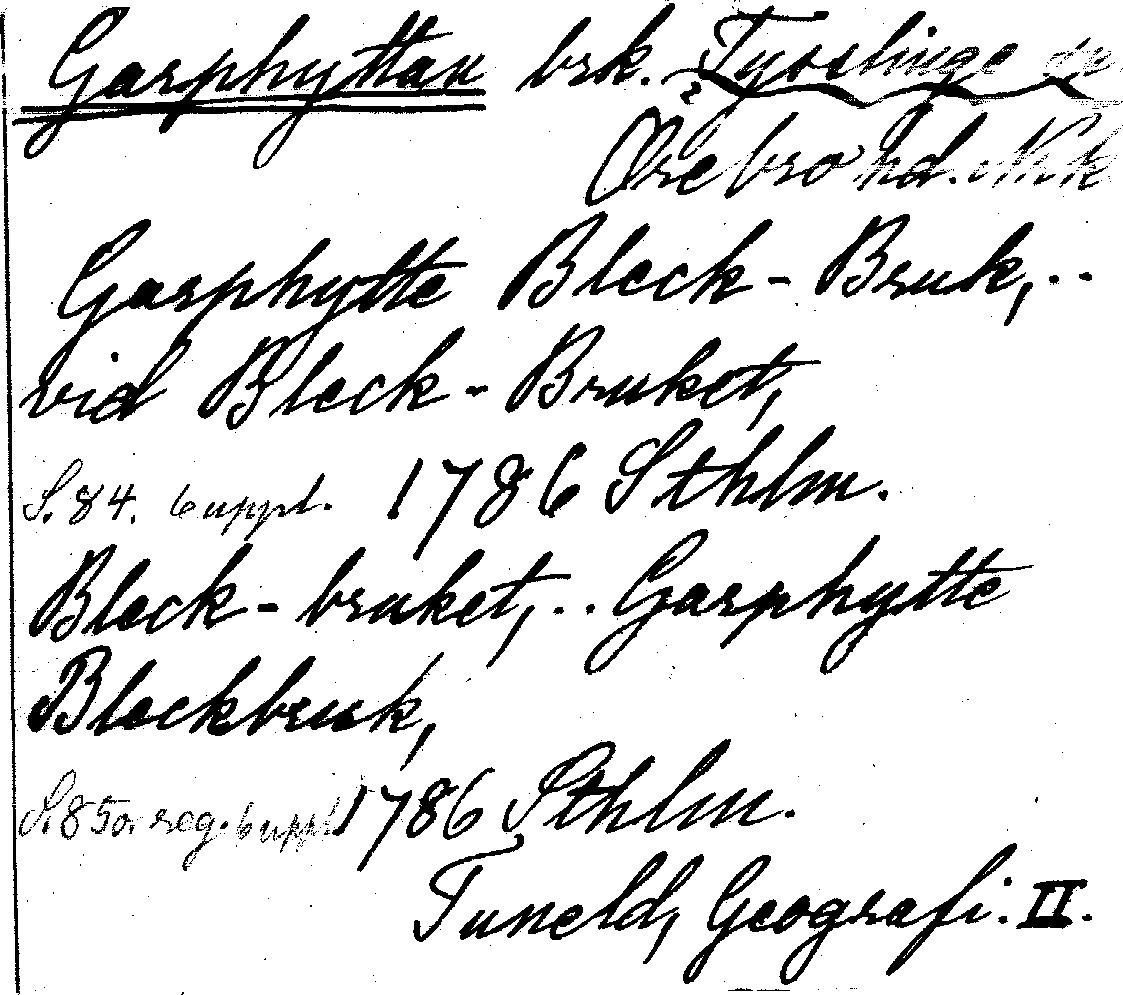 Garphyttan brk. Tysslinge sn
Örebro hd. Nrk
Garphytte Bleck-Bruk,..
vid Bleck-Bruket,
S. 84. 6 uppl. 1786 Sthlm.
Bleck-bruket,.. Garphytte
Bleckbruk,
S. 85 o. reg. 6 uppl. 1786 Sthlm.
Tuneld, Geografi. II.